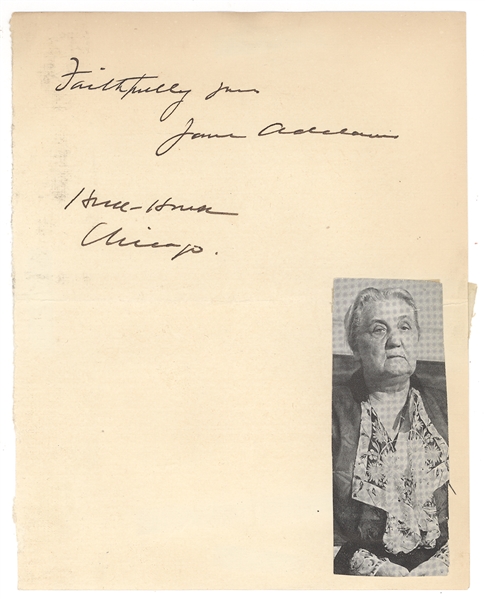 Faithfully yours
Jane Addams
Hull-House
Chicago.